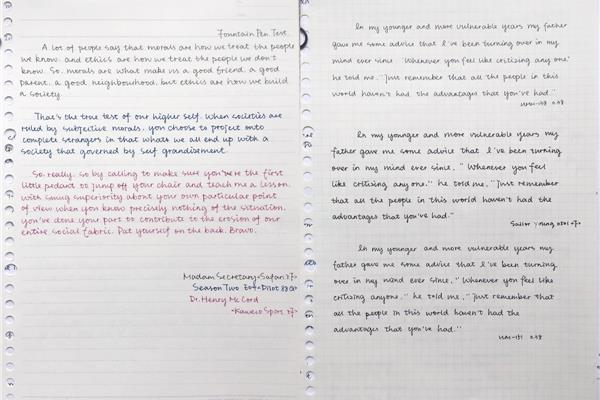 Fountain Pen Test
A lot of people say that morals are how we treat the people
we know, and ethics are how we treat the people we don't
know. So, morals are what make us a good friend, a good
parent, a good neighbourhood, but ethics are how we build
a society.
That's the true test of our higher self. When societies are
ruled by subjective morals, you choose to project onto
complete strangers in that whats we all end up with a
society that governed by self grandisement.
So, really, so by calling to make sure you're the first
little pedant to jump off your chair and teach me a lesson,
with smug superiority about your own particular point
of view when you know precisely nothing of the situation,
you've done your part to contribute to the erosion of our
entire social fabric. Pat yourself on the back. Bravo.
Madam Secretary
Season Two
Dr. Henry McCord
In my younger and more vulnerable years my father
gave me some advice that I've been turning over in my
mind ever since. "Whenever you feel like critizing any one"
he told me, "Just remember that all the people in this
world haven't had the advantages that you've had."
In my younger and more vulnerable years my
father gave me some advice that I've been turning
over in my mind ever since. "Whenever you feel
like critizing any one." he told me, "Just remember
that all the people in this world haven't had the
advantages that you've had."
In my younger and more vulnerable years my
father gave me some advice that I've been turning
over in my mind ever since. "Whenever you feel like
critizing anyone." he told me, "Just remember that
all the people in this world haven't had the
advantages that you've had."